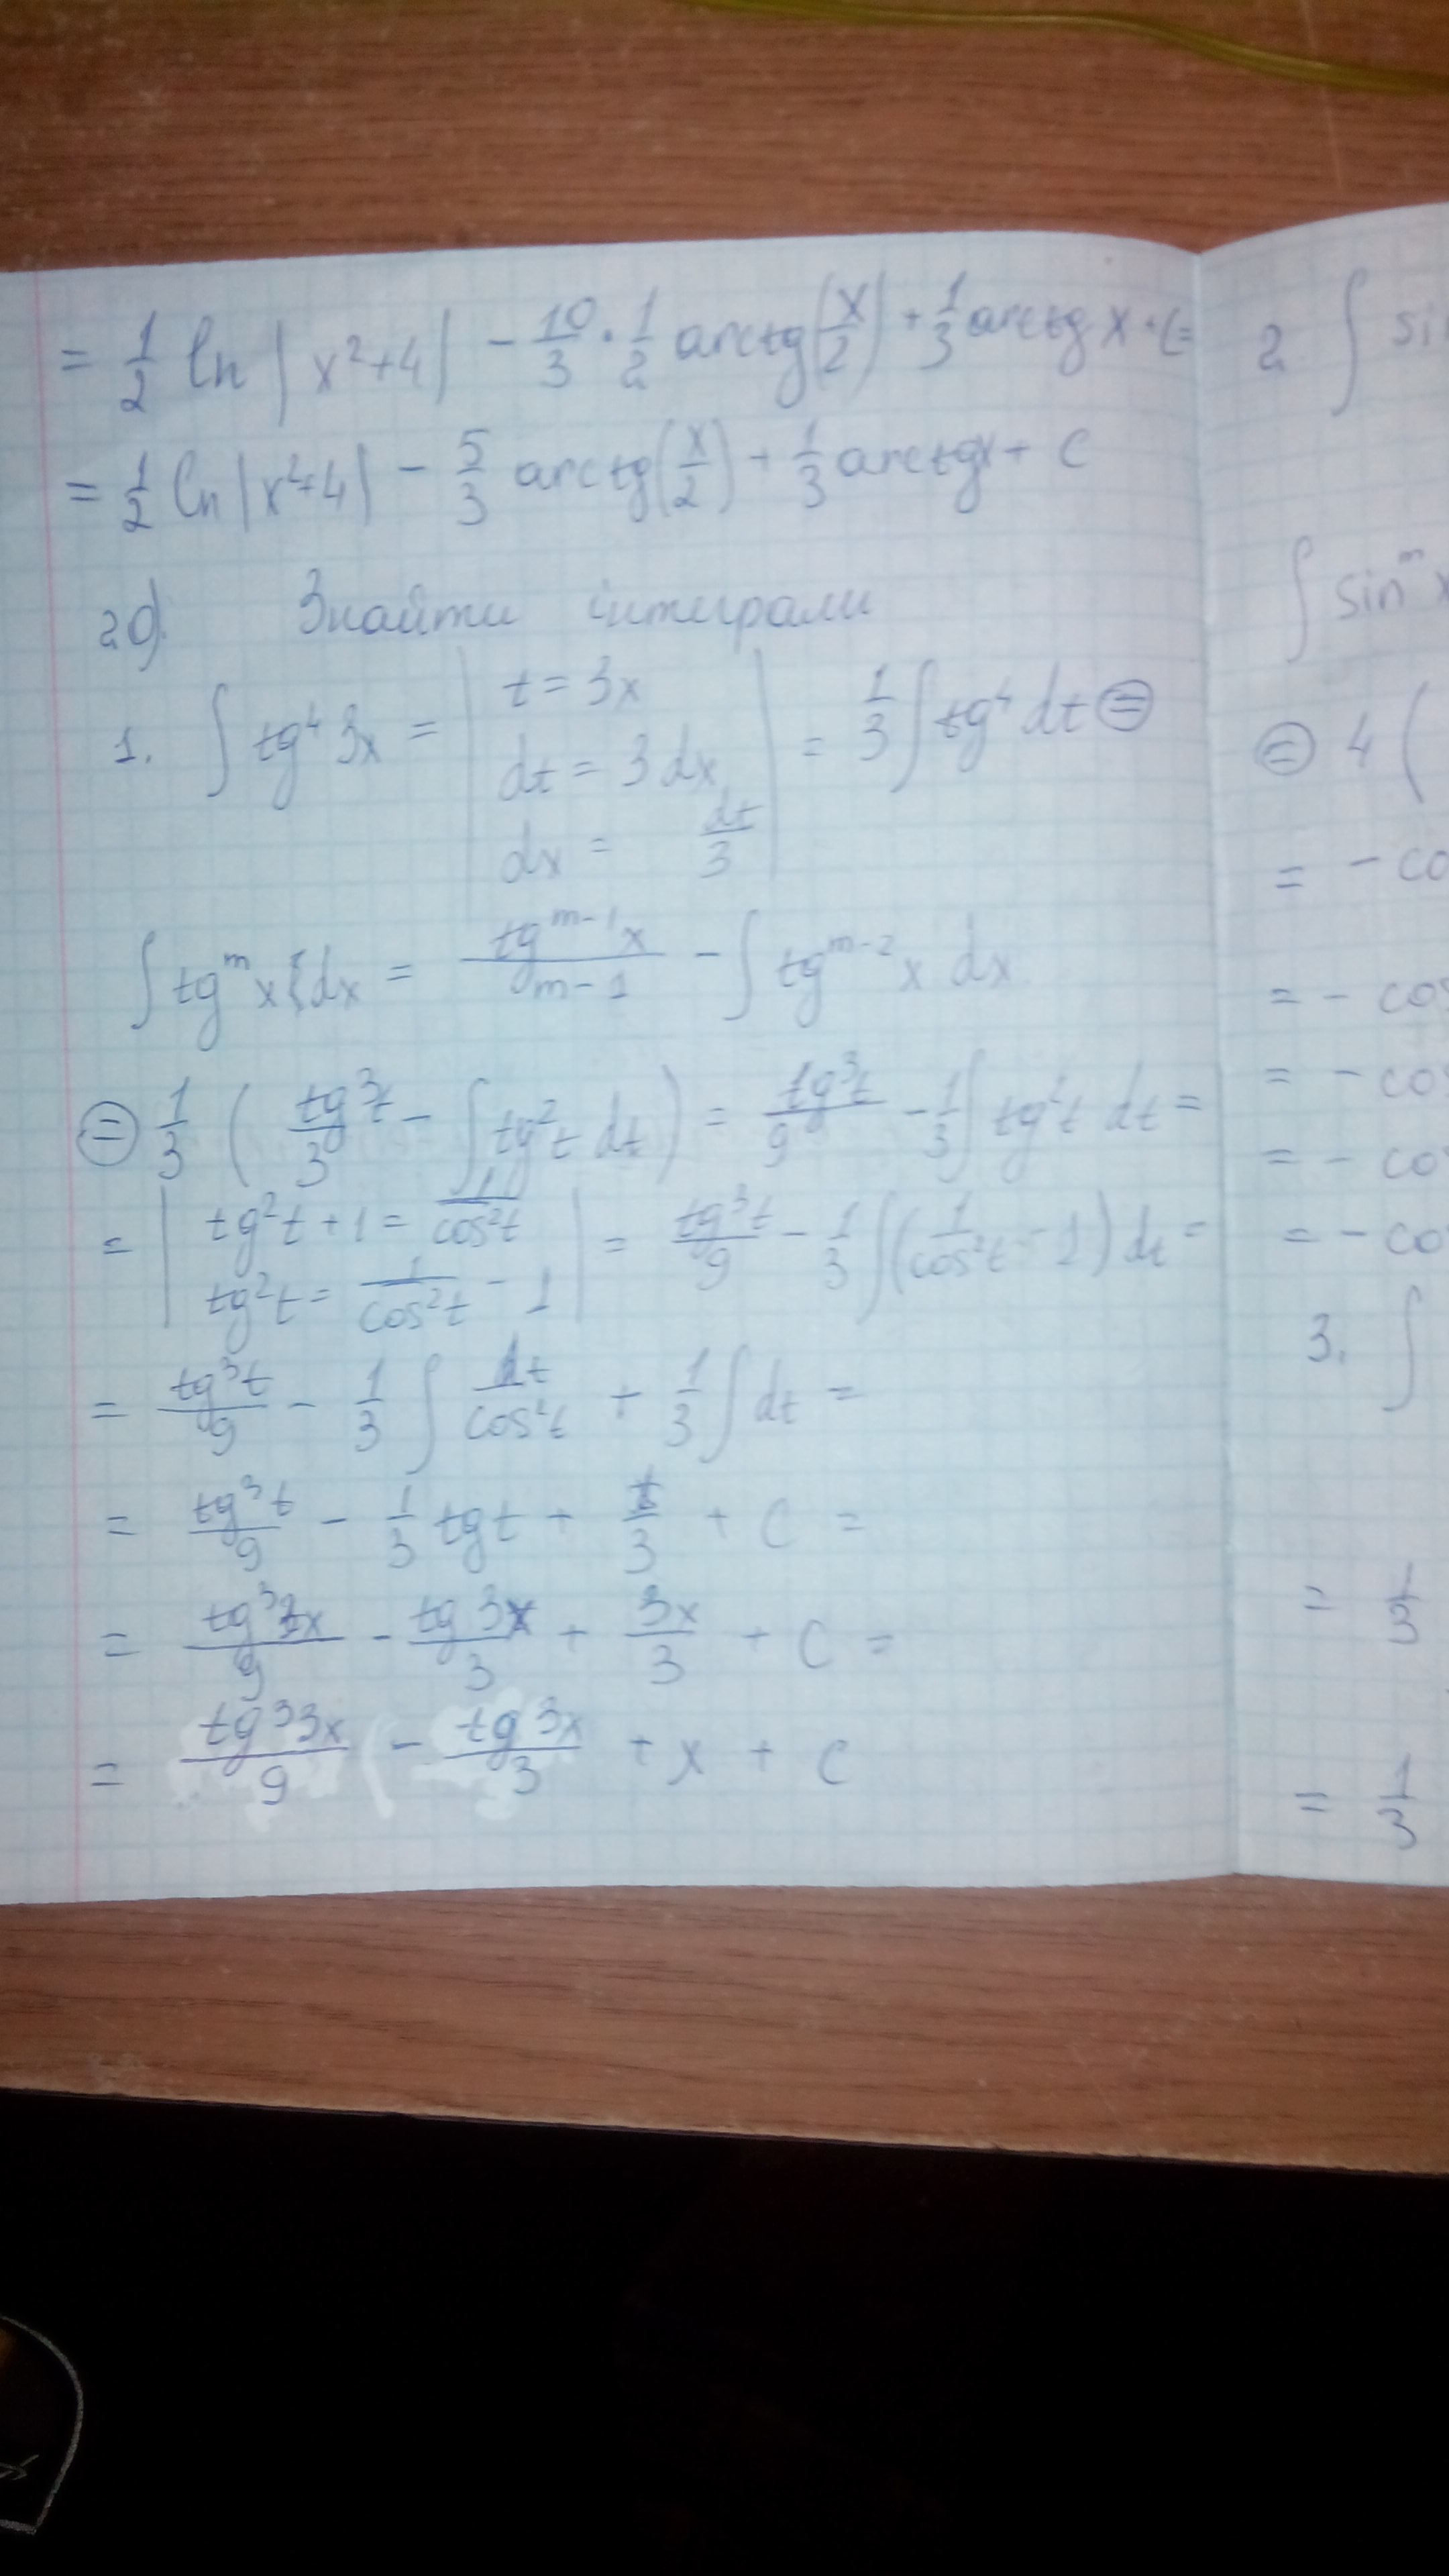 = 1/2 ln |x²+4| - 10/3 · 1/2 arctg(x/2) + 1/3 arctg x + C =
= 1/2 ln |x²+4| - 5/3 arctg(x/2) + 1/3 arctgx + C
2d) Знайти інтеграли
1. ∫ tg⁴ 3x = | t = 3x
dt = 3 dx
dx = dt/3 | = 1/3 ∫ tg⁴ dt ⊜
∫ tgᵐ x dx = tgᵐ⁻¹x / m-1 - ∫ tgᵐ⁻² x dx
⊜ 1/3 ( tg³t/3 - ∫ tg²t dt ) = tg³t/9 - 1/3 ∫ tg²t dt =
= | tg²t + 1 = 1/cos²t
tg²t = 1/cos²t - 1 | = tg³t/9 - 1/3 ∫ (1/cos²t - 1) dt =
= tg³t/9 - 1/3 ∫ dt/cos²t + 1/3 ∫ dt =
= tg³t/9 - 1/3 tgt + t/3 + C =
= tg³3x/9 - tg 3x/3 + 3x/3 + C =
= tg³3x/9 - tg 3x/3 + x + C
2 ∫
∫ sinᵐ x
⊜ 4 (
= - co
= - cos
= - co
= - co
= - co
3. ∫
= 1/3
= 1/3